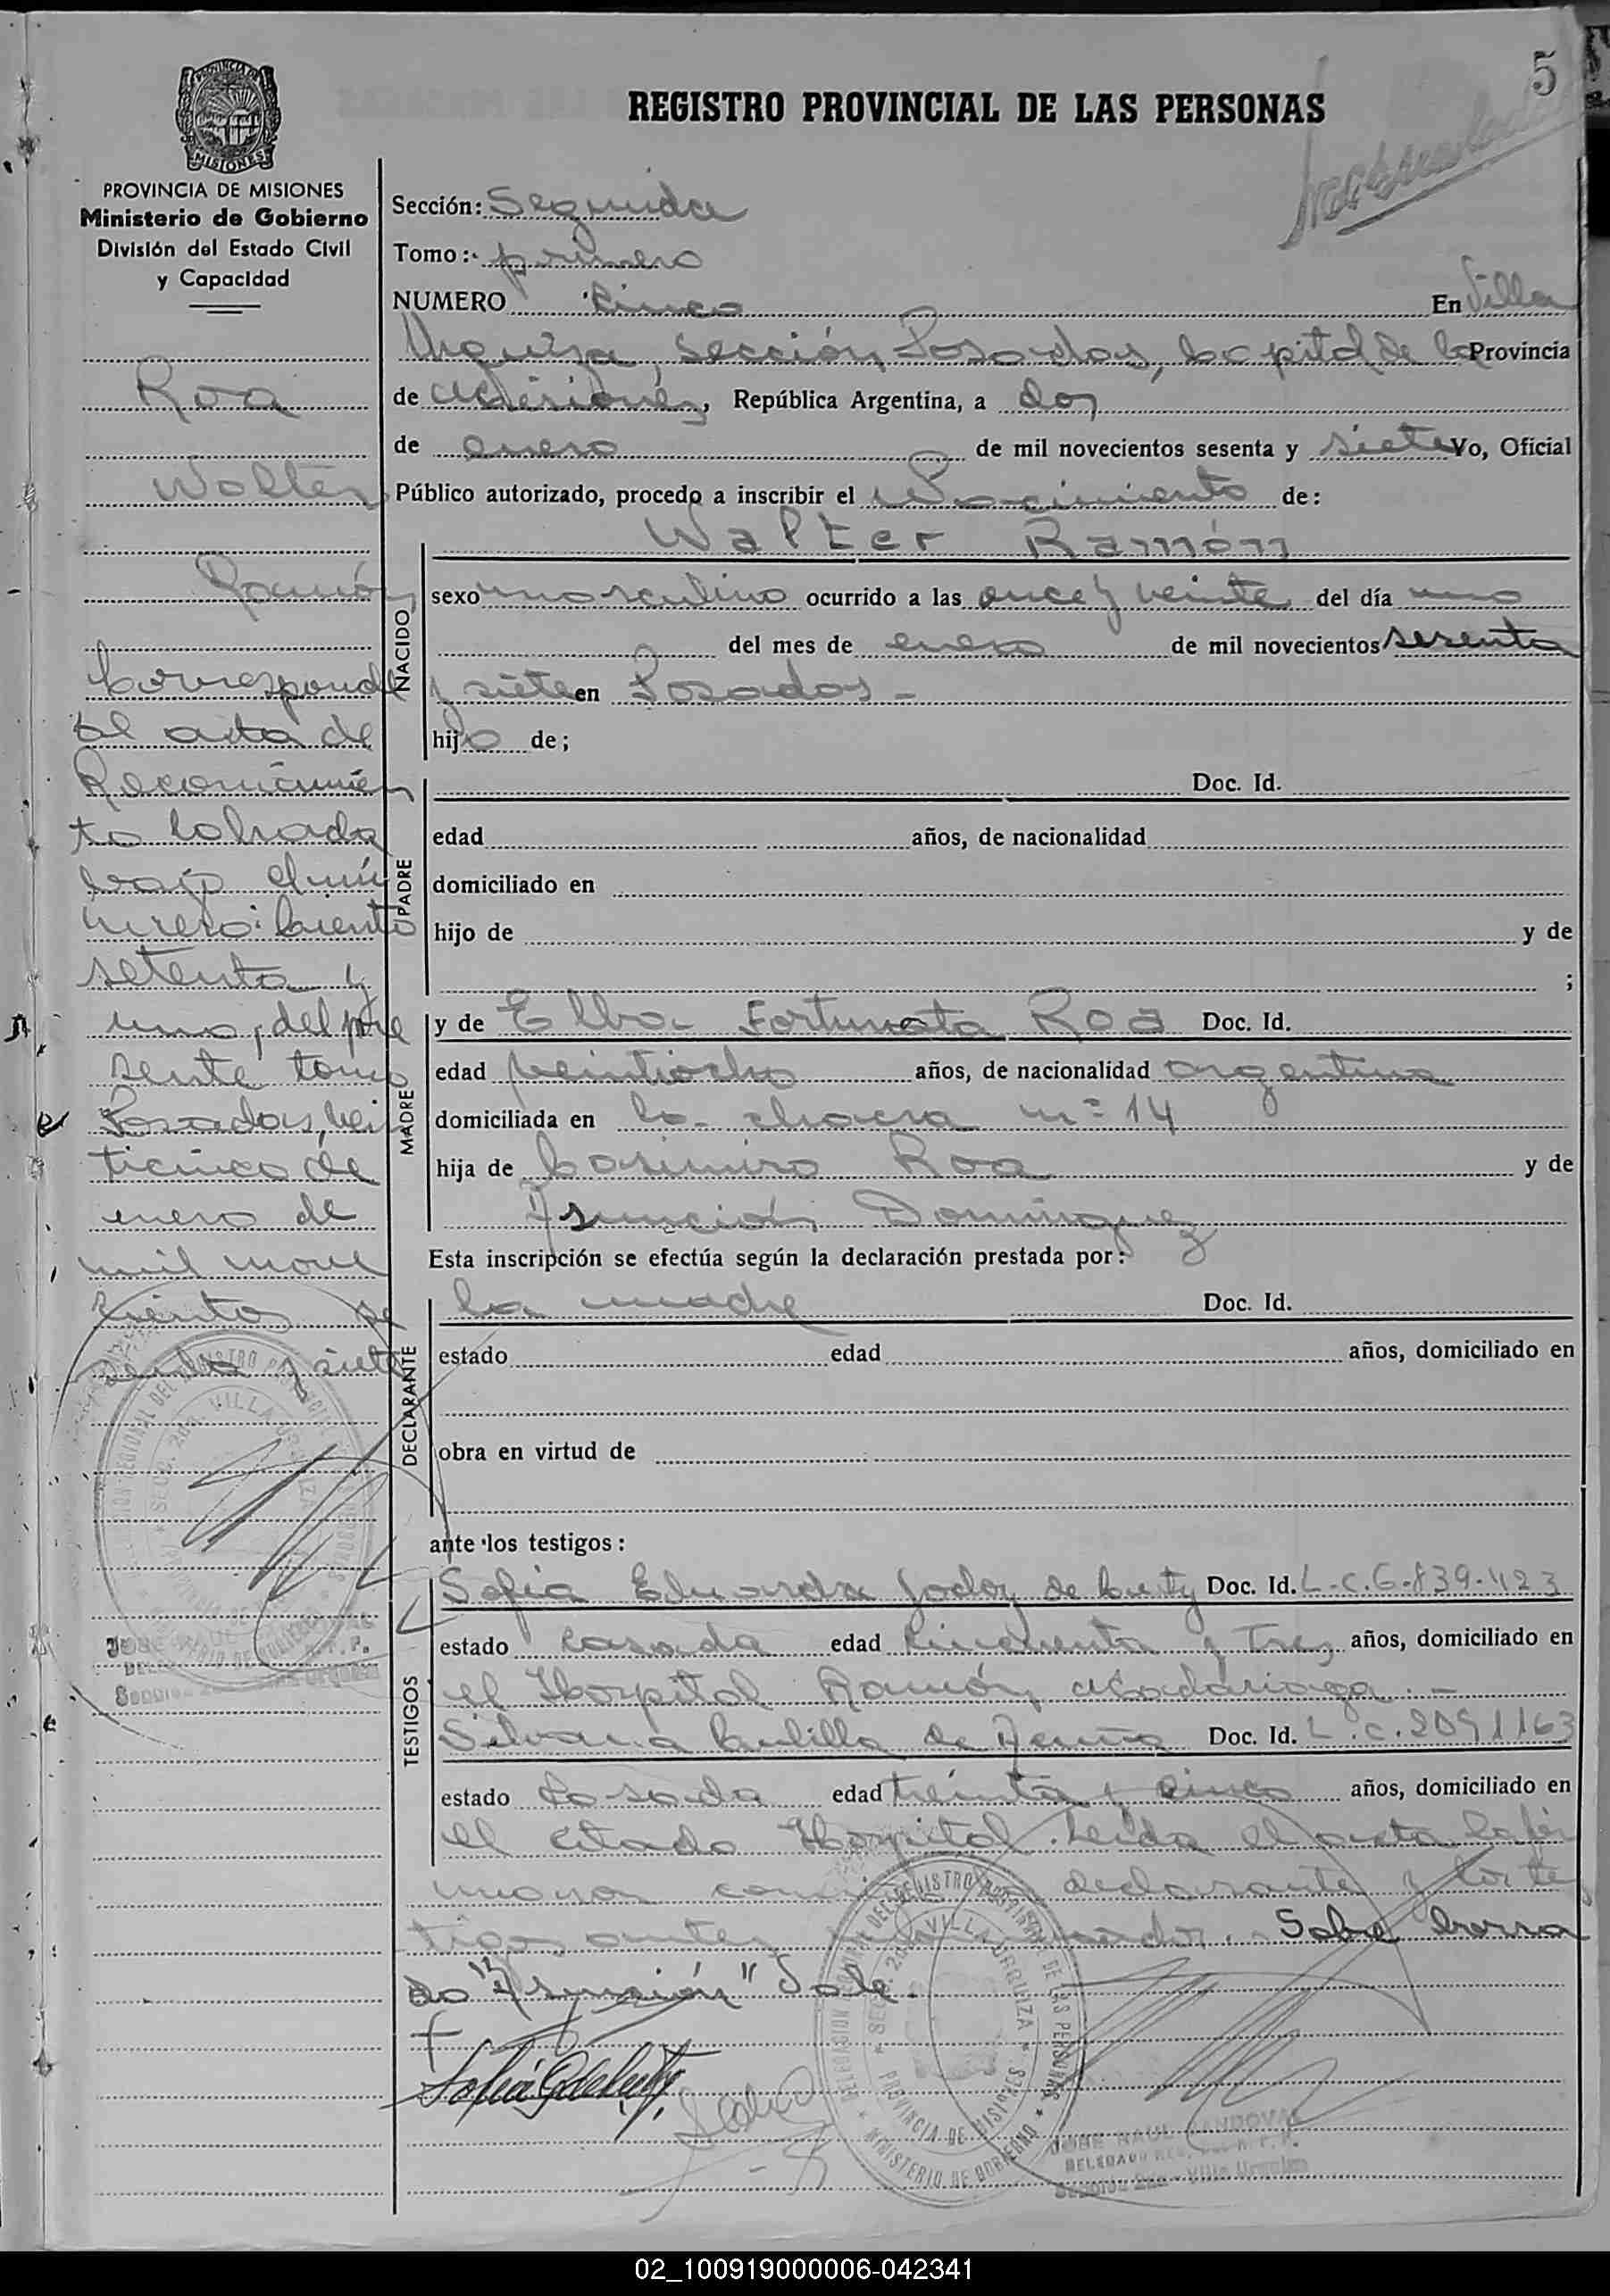 5
REGISTRO PROVINCIAL DE LAS PERSONAS
MISIONES
PROVINCIA DE MISIONES
Ministerio de Gobierno
División del Estado Civil
y Capacidad
Roa
Walter
Ramón
Corresponde
al acta de
Reconocimien
to labrada
bajo el nú
mero: Ciento
setenta y
uno, del pre
sente tomo
Posadas, vein
ticinco de
enero de
mil nove
cientos se
senta y siete
Sección: Segunda
Tomo: primero
NUMERO Cinco En Villa
Urquiza, Sección Posadas, Capital de la Provincia
de Misiones, República Argentina, a dos
de enero de mil novecientos sesenta y siete Yo, Oficial
Público autorizado, procedo a inscribir el Nacimiento de:
Walter Ramón
NACIDO
sexo masculino ocurrido a las once y veinte del día uno
del mes de enero de mil novecientos sesenta
y siete en Posadas -
hijo de;
PADRE
Doc. Id.
edad años, de nacionalidad
domiciliado en
hijo de y de
;
MADRE
y de Elba Fortunata Roa Doc. Id.
edad veintiocho años, de nacionalidad argentina
domiciliada en la chacra nº 14
hija de Casimiro Roa y de
Asunción Dominguez
Esta inscripción se efectúa según la declaración prestada por:
DECLARANTE
la madre Doc. Id.
estado edad años, domiciliado en
obra en virtud de
ante los testigos:
TESTIGOS
Sofia Eduarda Godoy de Doc. Id. L.C. 6.839.423
estado casada edad cincuenta y tres años, domiciliado en
el Hospital Ramón Madariaga.-
Silvana de Doc. Id. L.C. 2091163
estado casada edad treinta y cinco años, domiciliado en
el citado Hospital. Leida el acta la fir
man declarante y los tes
tigos antes. Sobre borra
do "Asunción" Vale.
DELEGACION REGIONAL DEL REGISTRO PROVINCIAL DE LAS PERSONAS
SECC. 2da. VILLA URQUIZA
PROVINCIA DE MISIONES
MINISTERIO DE GOBIERNO
JOSE RAUL SANDOVAL
Sección 2da - Villa Urquiza
02_100919000006-042341